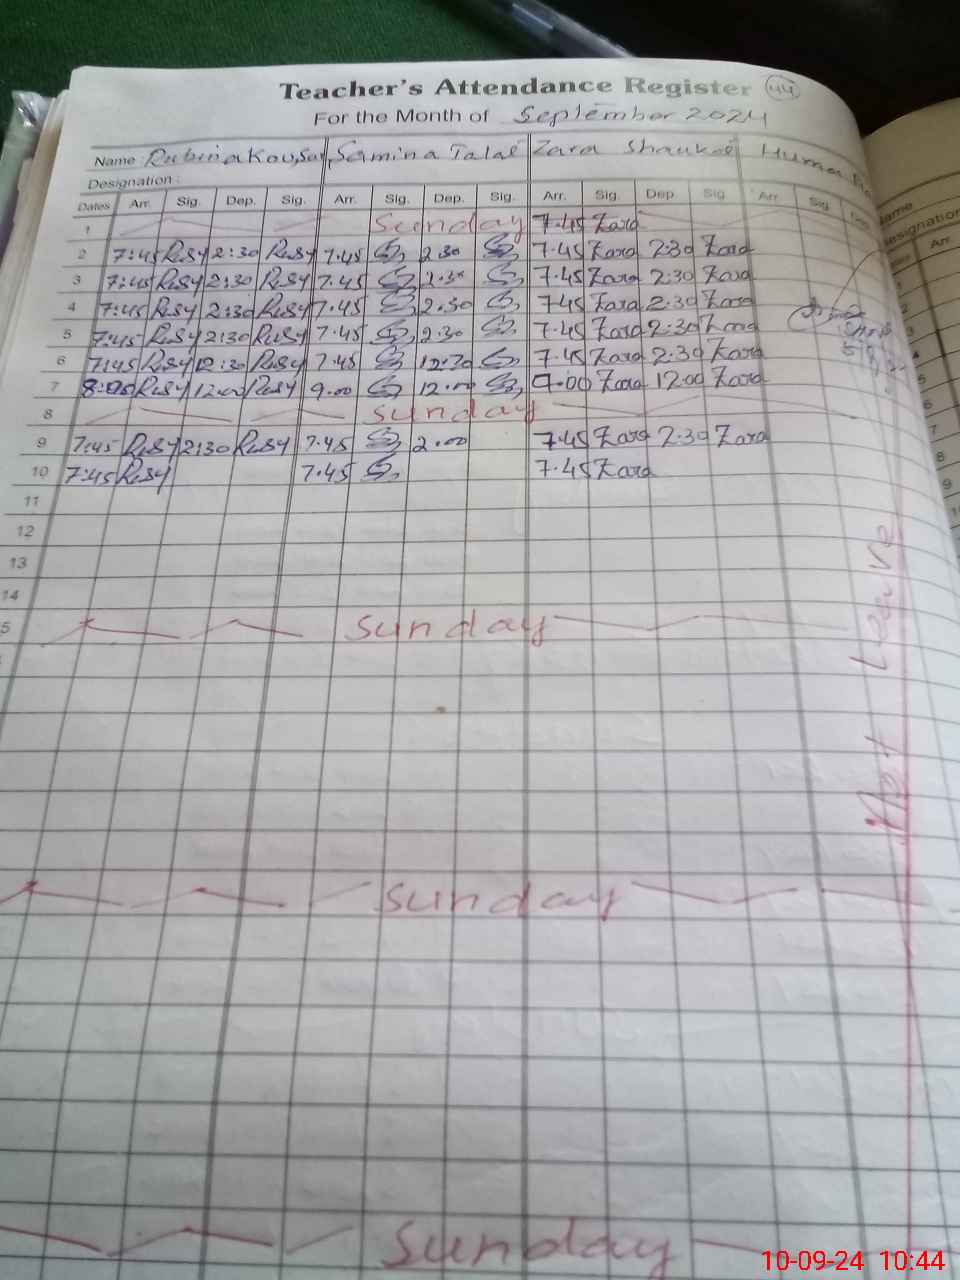 Teacher's Attendance Register 44
For the Month of September 2024
Name : Rubina Kousar Samina Talat Zara Shaukat Huma
Designation :
Dates Arr. Sig. Dep. Sig. Arr. Sig. Dep. Sig. Arr. Sig. Dep. Sig Arr. Sig
1 Sunday 7.45 Zara
2 7:45 2:30 7.45 2.30 7.45 Zara 2:30 Zara
3 7:45 2:30 7.45 2.30 7.45 Zara 2:30 Zara
4 7:45 2:30 7.45 2.30 7.45 Zara 2.30 Zara
5 7:45 2:30 7.45 2.30 7.45 Zara 2:30 Zara
6 7:45 12:30 7.45 12.30 7.45 Zara 2:30 Zara
7 12:00 9.00 12.00 9.00 Zara 12.00 Zara
8 Sunday
9 7:45 2:30 7.45 2.00 7.45 Zara 2.30 Zara
10 7:45 7.45 7.45 Zara
11
12
13
14
5 Sunday
Leave
Sunday
Sunday
Name
Designation
Arr
10-09-24 10:44